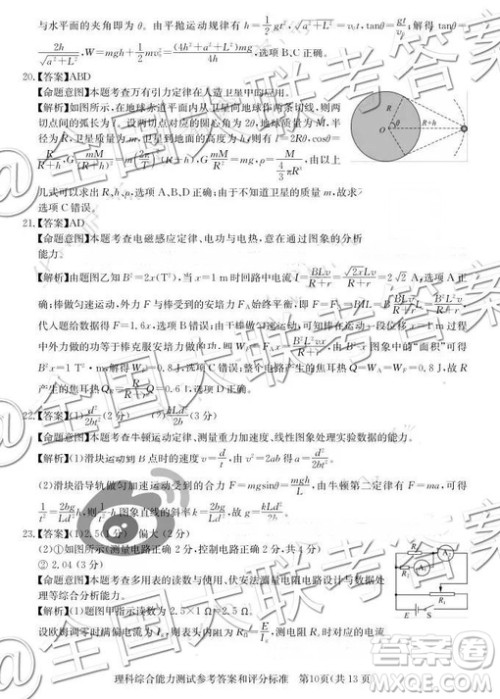 与水平面的夹角即为θ。由平抛运动规律有h=1/2gt²,√(a²+L²)=v₀t,tanθ=gt/v₀;解得tanθ=
2h/√(a²+L²),W=mgh+1/2mv₀²=(4h²+a²+L²)mg/4h,选项B、C正确。
20.【答案】ABD
【命题意图】本题考查万有引力定律在人造卫星中的应用。
【解析】如图所示,在地球赤道平面内从卫星向地球作两条切线,则两
切点间的弧长为l。设两切点对应的圆心角为2θ,地球质量为M,半
径为R,卫星质量为m,卫星到地面的高度为h,则有l=2Rθ,cosθ=
R/(R+h),G Mm/(R+h)²=m(2π/T)²(R+h),G Mm/R²=mg,ρ=M/(4/3πR³),由以上
几式可以求出R、h、ρ,选项A、B、D正确;由于不知道卫星的质量m,故
选项C错误。
R
θ
R+h
21.【答案】AD
【命题意图】本题考查电磁感应定律、电功与电热,意在通过图象的分析
能力。
【解析】由题图乙知B²=2x(T²),当x=1m时回路中电流I=BLv/(R+r)=√(2x)Lv/(R+r)=2√2A,选项A正
确;棒做匀速运动,外力F与棒受到的安培力F_A始终平衡,即F=
代入题给数据得F=1.6x,选项B错误;由于棒做匀速运动,可知在一段位移x=1m过程
中外力做的功等于棒克服安培力做的功
B²x=1T²·m解得W_F=0.8J,选项C错误;整个电路产生的焦耳热Q=W_A=W_F=0.8J,故R
产生的焦耳热Q_R=R/(R+r)Q=0.6J,选项D正确。
22.【答案】(1)d²/2bt²(2分) (2)kLd²/2b(3分)
【命题意图】本题考查牛顿运动定律、测量重力加速度、线性图象处理实验数据的能力。
【解析】(1)滑块运动到B点时的速度v=d/t,由v²=2ab得a=d²/2bt²。
(2)滑块沿导轨做匀加速运动受到的合力F=mgsinθ=mgh/L,由牛顿第二定律有F=ma,可得
1/t²=2bg/Ld²h,则1/t²-h图象直线的斜率k=2bg/Ld²,得g=kLd²/2b。
23.【答案】(1)2.5(1分) 偏大(2分)
(2)①如图所示(测量电路正确2分,控制电路正确2分,共4分)
②2.04(3分)
【命题意图】本题考查多用表的读数与使用、伏安法测量电阻电路设计与数据处
理等综合分析能力。
【解析】(1)题图甲指示读数为2.5×1Ω=2.5Ω。
设欧姆调零时表头满偏电流为I_g,则表头内阻R₀=E/I_g
理科综合能力测试参考答案和评分标准 第10页(共13页)
@全国大联考答案